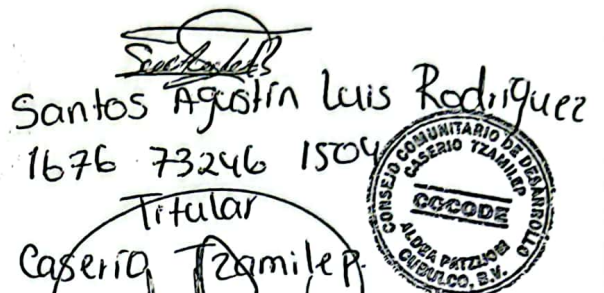 Santos Agustín Luis Rodríguez
1676 73246 1504
Titular
Caserío Tzamilep.
CONSEJO COMUNITARIO DE DESARROLLO
CASERIO TZAMILEP
COCODE
ALDEA PATZIJOM
CUBULCO, B.V.